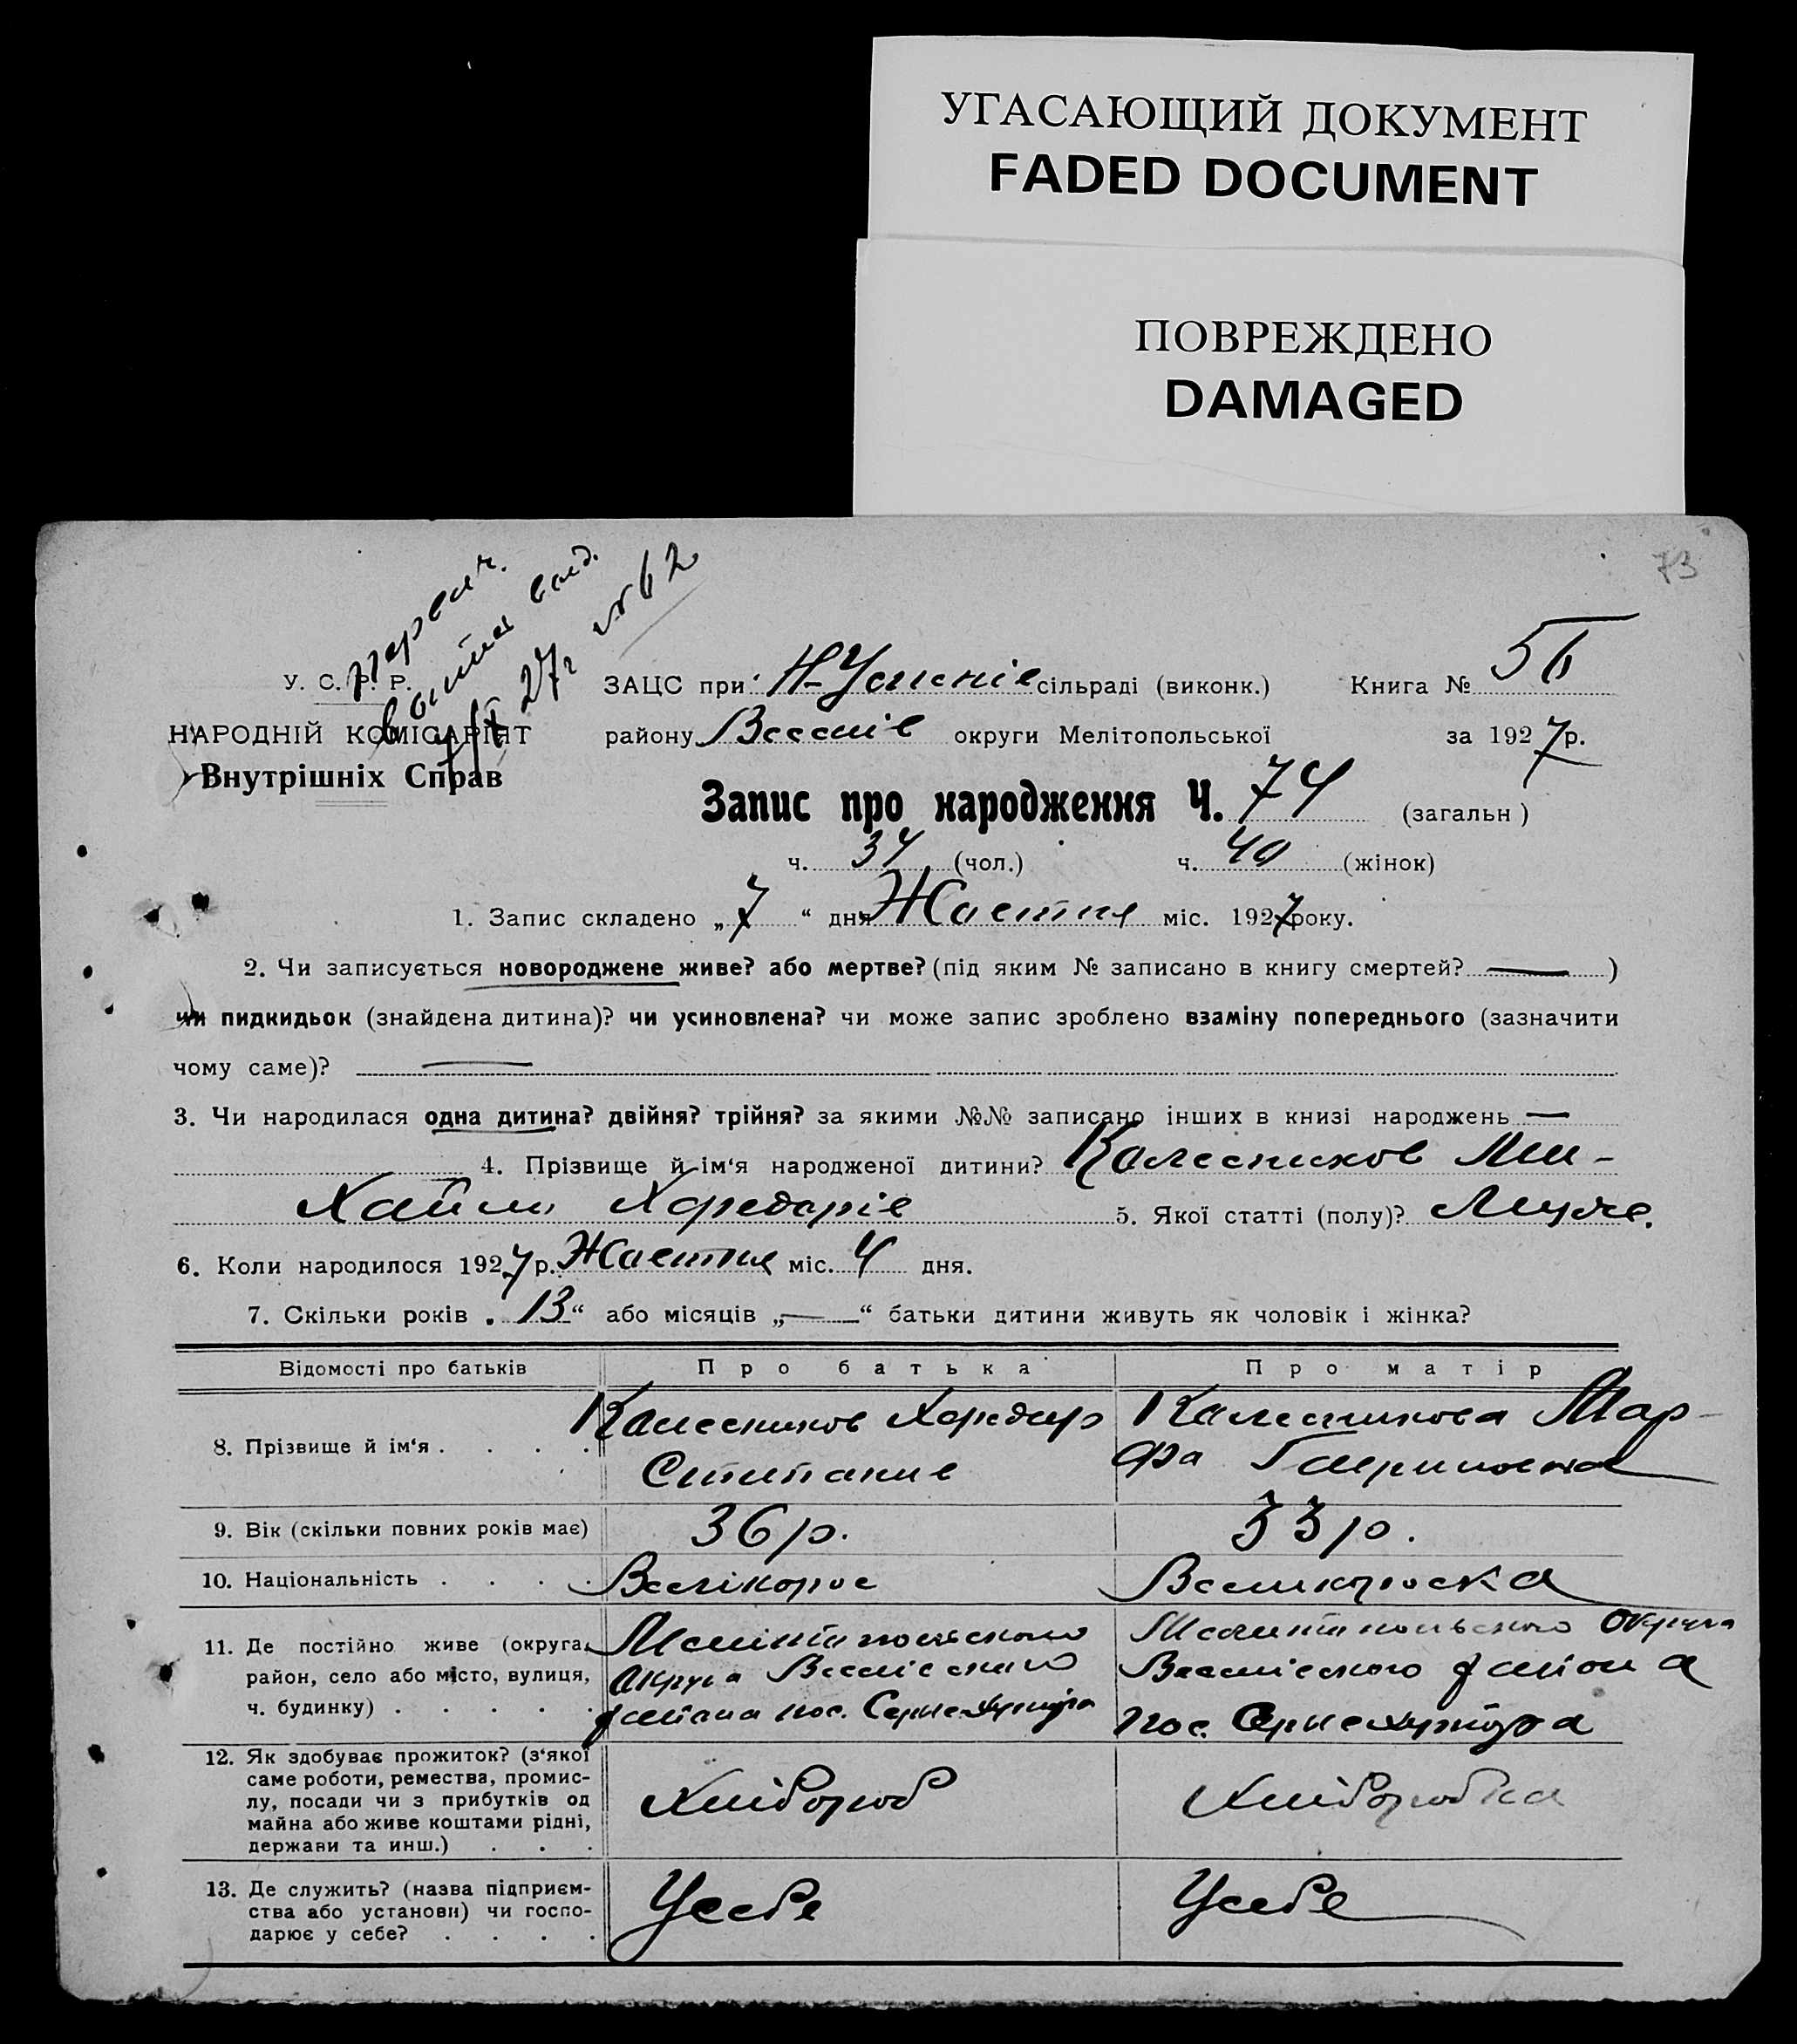 УГАСАЮЩИЙ ДОКУМЕНТ
FADED DOCUMENT
ПОВРЕЖДЕНО
DAMAGED
73
27г №62
У. С. Р. Р.
НАРОДНІЙ КОМІСАРІЯТ
Внутрішніх Справ
ЗАЦС при Н-Успеніе сільраді (виконк.) Книга №
району Веселів округи Мелітопольської за 1927 р.
Запис про народження Ч. 74 (загальн)
ч. 34 (чол.) ч. 40 (жінок)
1. Запис складено „7“ дня Жовтня міс. 1927 року.
2. Чи записується новороджене живе? або мертве? (під яким № записано в книгу смертей? — )
чи пидкидьок (знайдена дитина)? чи усиновлена? чи може запис зроблено взаміну попереднього (зазначити
чому саме)? —
3. Чи народилася одна дитина? двійня? трійня? за якими №№ записано інших в книзі народжень —
4. Прізвище й ім‘я народженої дитини? Калесников Ми-
хайил Хфедоріе 5. Якої статті (полу)? Мужс.
6. Коли народилося 1927 р. Жавтня міс. 4 дня.
7. Скільки років „13“ або місяців „—“ батьки дитини живуть як чоловік і жінка?
Відомості про батьків Про батька Про матір
8. Прізвище й ім‘я . . . . Калесников Хфедар Калесникова Мар-
Стипание фа Гаериловна
9. Вік (скільки повних років має) 36 р. 33 р.
10. Національність . . . . Велікорос Великороска
11. Де постійно живе (округа, Мелітопольського Мелитопольского Округа
район, село або місто, вулиця, Акруга Веселіеского Веселіеского района
ч. будинку) . . . . . района пос.  пос.
12. Як здобуває прожиток? (з‘якої
саме роботи, ремества, промис-
лу, посади чи з прибутків од Хлібороб Хліборобка
майна або живе коштами рідні,
держави та инш.) . . .
13. Де служить? (назва підприєм-
ства або установи) чи госпо- Усебе Усебе
дарює у себе? . . . .